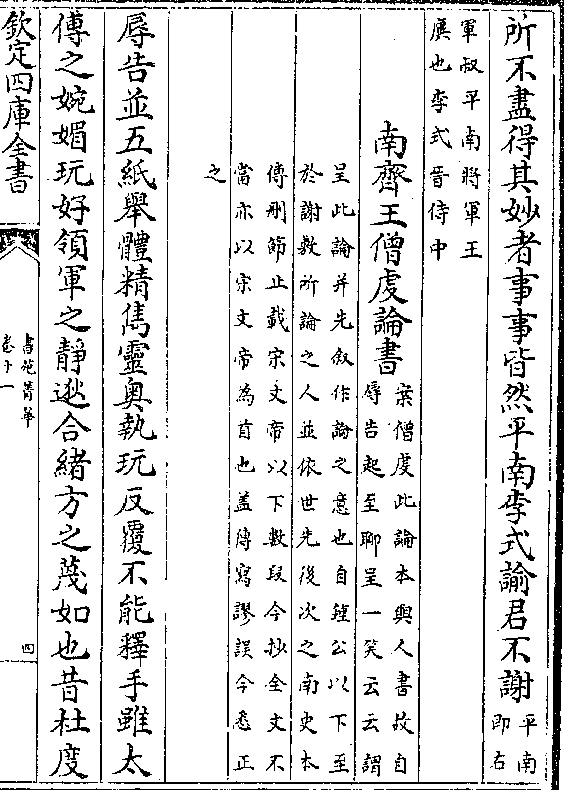 所不盡得其妙者事事皆然平南李式論君不謝平南
即右
軍叔平南將軍王
廙也李式晉侍中
南齊王僧虔論書案僧虔此論本與人書故自
辱告起至聊呈一笑云云謂
呈此論并先叙作論之意也自鍾公以下至
於謝敷所論之人並依世先後次之南史本
傳刪節止載宋文帝以下數段今抄全文不
當亦以宋文帝為首也盖傳寫謬誤今悉正
之
辱告並五紙舉體精雋靈奥執玩反覆不能釋手雖太
傅之婉媚玩好領軍之靜遜合緒方之蔑如也昔杜度
欽定四庫全書
書苑菁華
卷十一
四